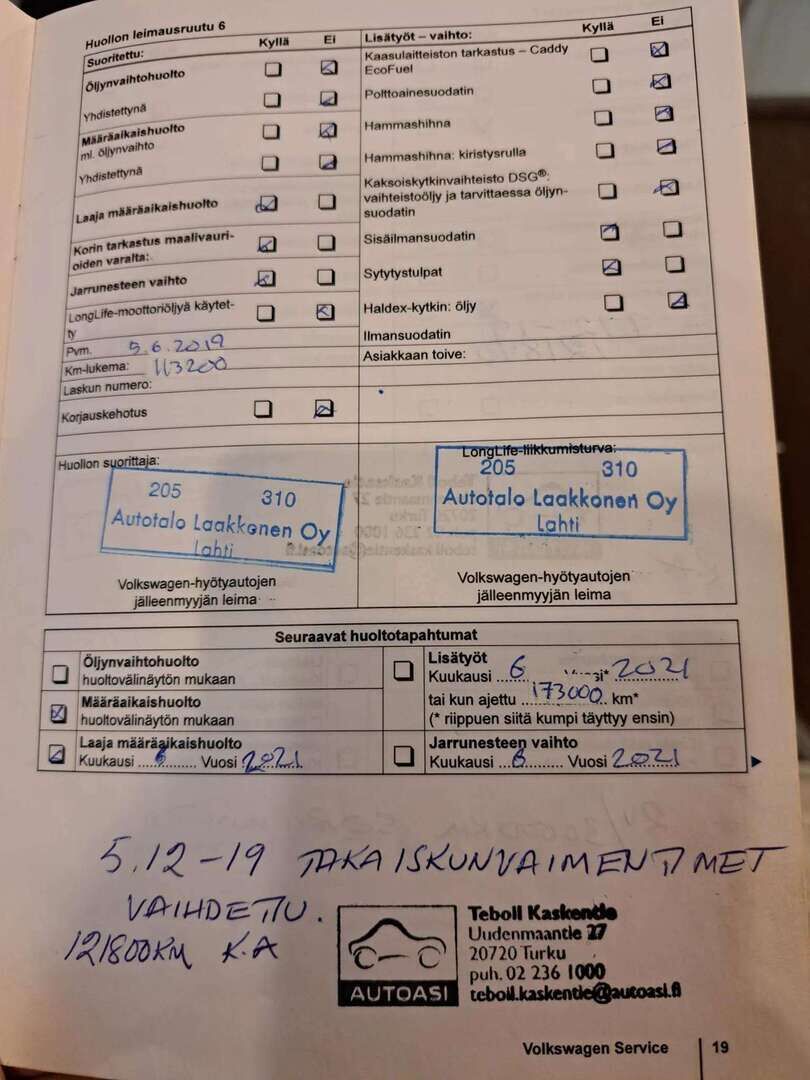 Huollon leimausruutu 6
Suoritettu: Kyllä Ei
Öljynvaihtohuolto
Yhdistettynä
Määräaikaishuolto
ml. öljynvaihto
Yhdistettynä
Laaja määräaikaishuolto
Korin tarkastus maalivauri-
oiden varalta:
Jarrunesteen vaihto
LongLife-moottoriöljyä käytet-
ty
Pvm. 5.6.2019
Km-lukema: 113200
Laskun numero:
Korjauskehotus
Lisätyöt – vaihto: Kyllä Ei
Kaasulaitteiston tarkastus – Caddy
EcoFuel
Polttoainesuodatin
Hammashihna
Hammashihna: kiristysrulla
Kaksoiskytkinvaihteisto DSG®:
vaihteistoöljy ja tarvittaessa öljyn-
suodatin
Sisäilmansuodatin
Sytytystulpat
Haldex-kytkin: öljy
Ilmansuodatin
Asiakkaan toive:
Huollon suorittaja:
205 310
Autotalo Laakkonen Oy
Lahti
Volkswagen-hyötyautojen
jälleenmyyjän leima
LongLife-liikkumisturva:
205 310
Autotalo Laakkonen Oy
Lahti
Volkswagen-hyötyautojen
jälleenmyyjän leima
Seuraavat huoltotapahtumat
Öljynvaihtohuolto
huoltovälinäytön mukaan
Määräaikaishuolto
huoltovälinäytön mukaan
Laaja määräaikaishuolto
Kuukausi 6 Vuosi 2021
Lisätyöt
Kuukausi 6 2021
tai kun ajettu 173000 km*
(* riippuen siitä kumpi täyttyy ensin)
Jarrunesteen vaihto
Kuukausi 6 Vuosi 2021
5.12-19 TAKAISKUNVAIMENTIMET
VAIHDETTU.
121800KM K.A
AUTOASI
Teboil Kaskentie
Uudenmaantie 27
20720 Turku
puh. 02 236 1000
teboil.kaskentie@autoasi.fi
Volkswagen Service 19